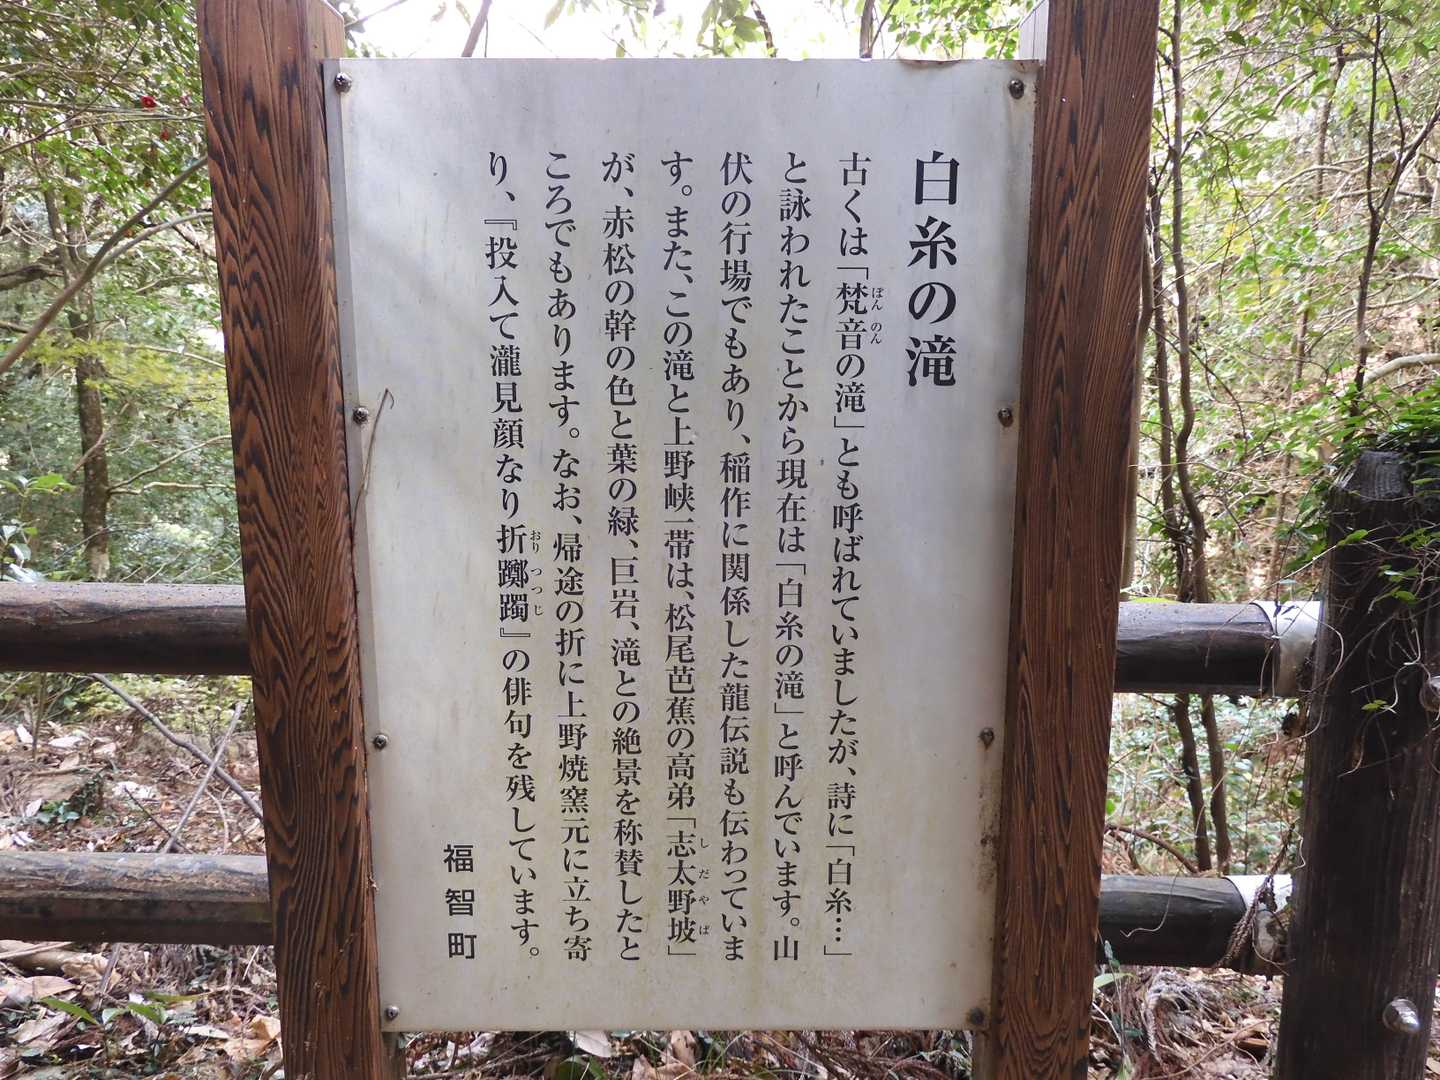 白糸の滝
古くは「梵音の滝」とも呼ばれていましたが、詩に「白糸…」
ぼんのん
と詠われたことから現在は「白糸の滝」と呼んでいます。山
伏の行場でもあり、稲作に関係した龍伝説も伝わっていま
す。また、この滝と上野峡一帯は、松尾芭蕉の高弟「志太野坡」
しだやば
が、赤松の幹の色と葉の緑、巨岩、滝との絶景を称賛したと
ころでもあります。なお、帰途の折に上野焼窯元に立ち寄
り、『投入て瀧見顔なり折躑躅』の俳句を残しています。
おりつつじ
福智町